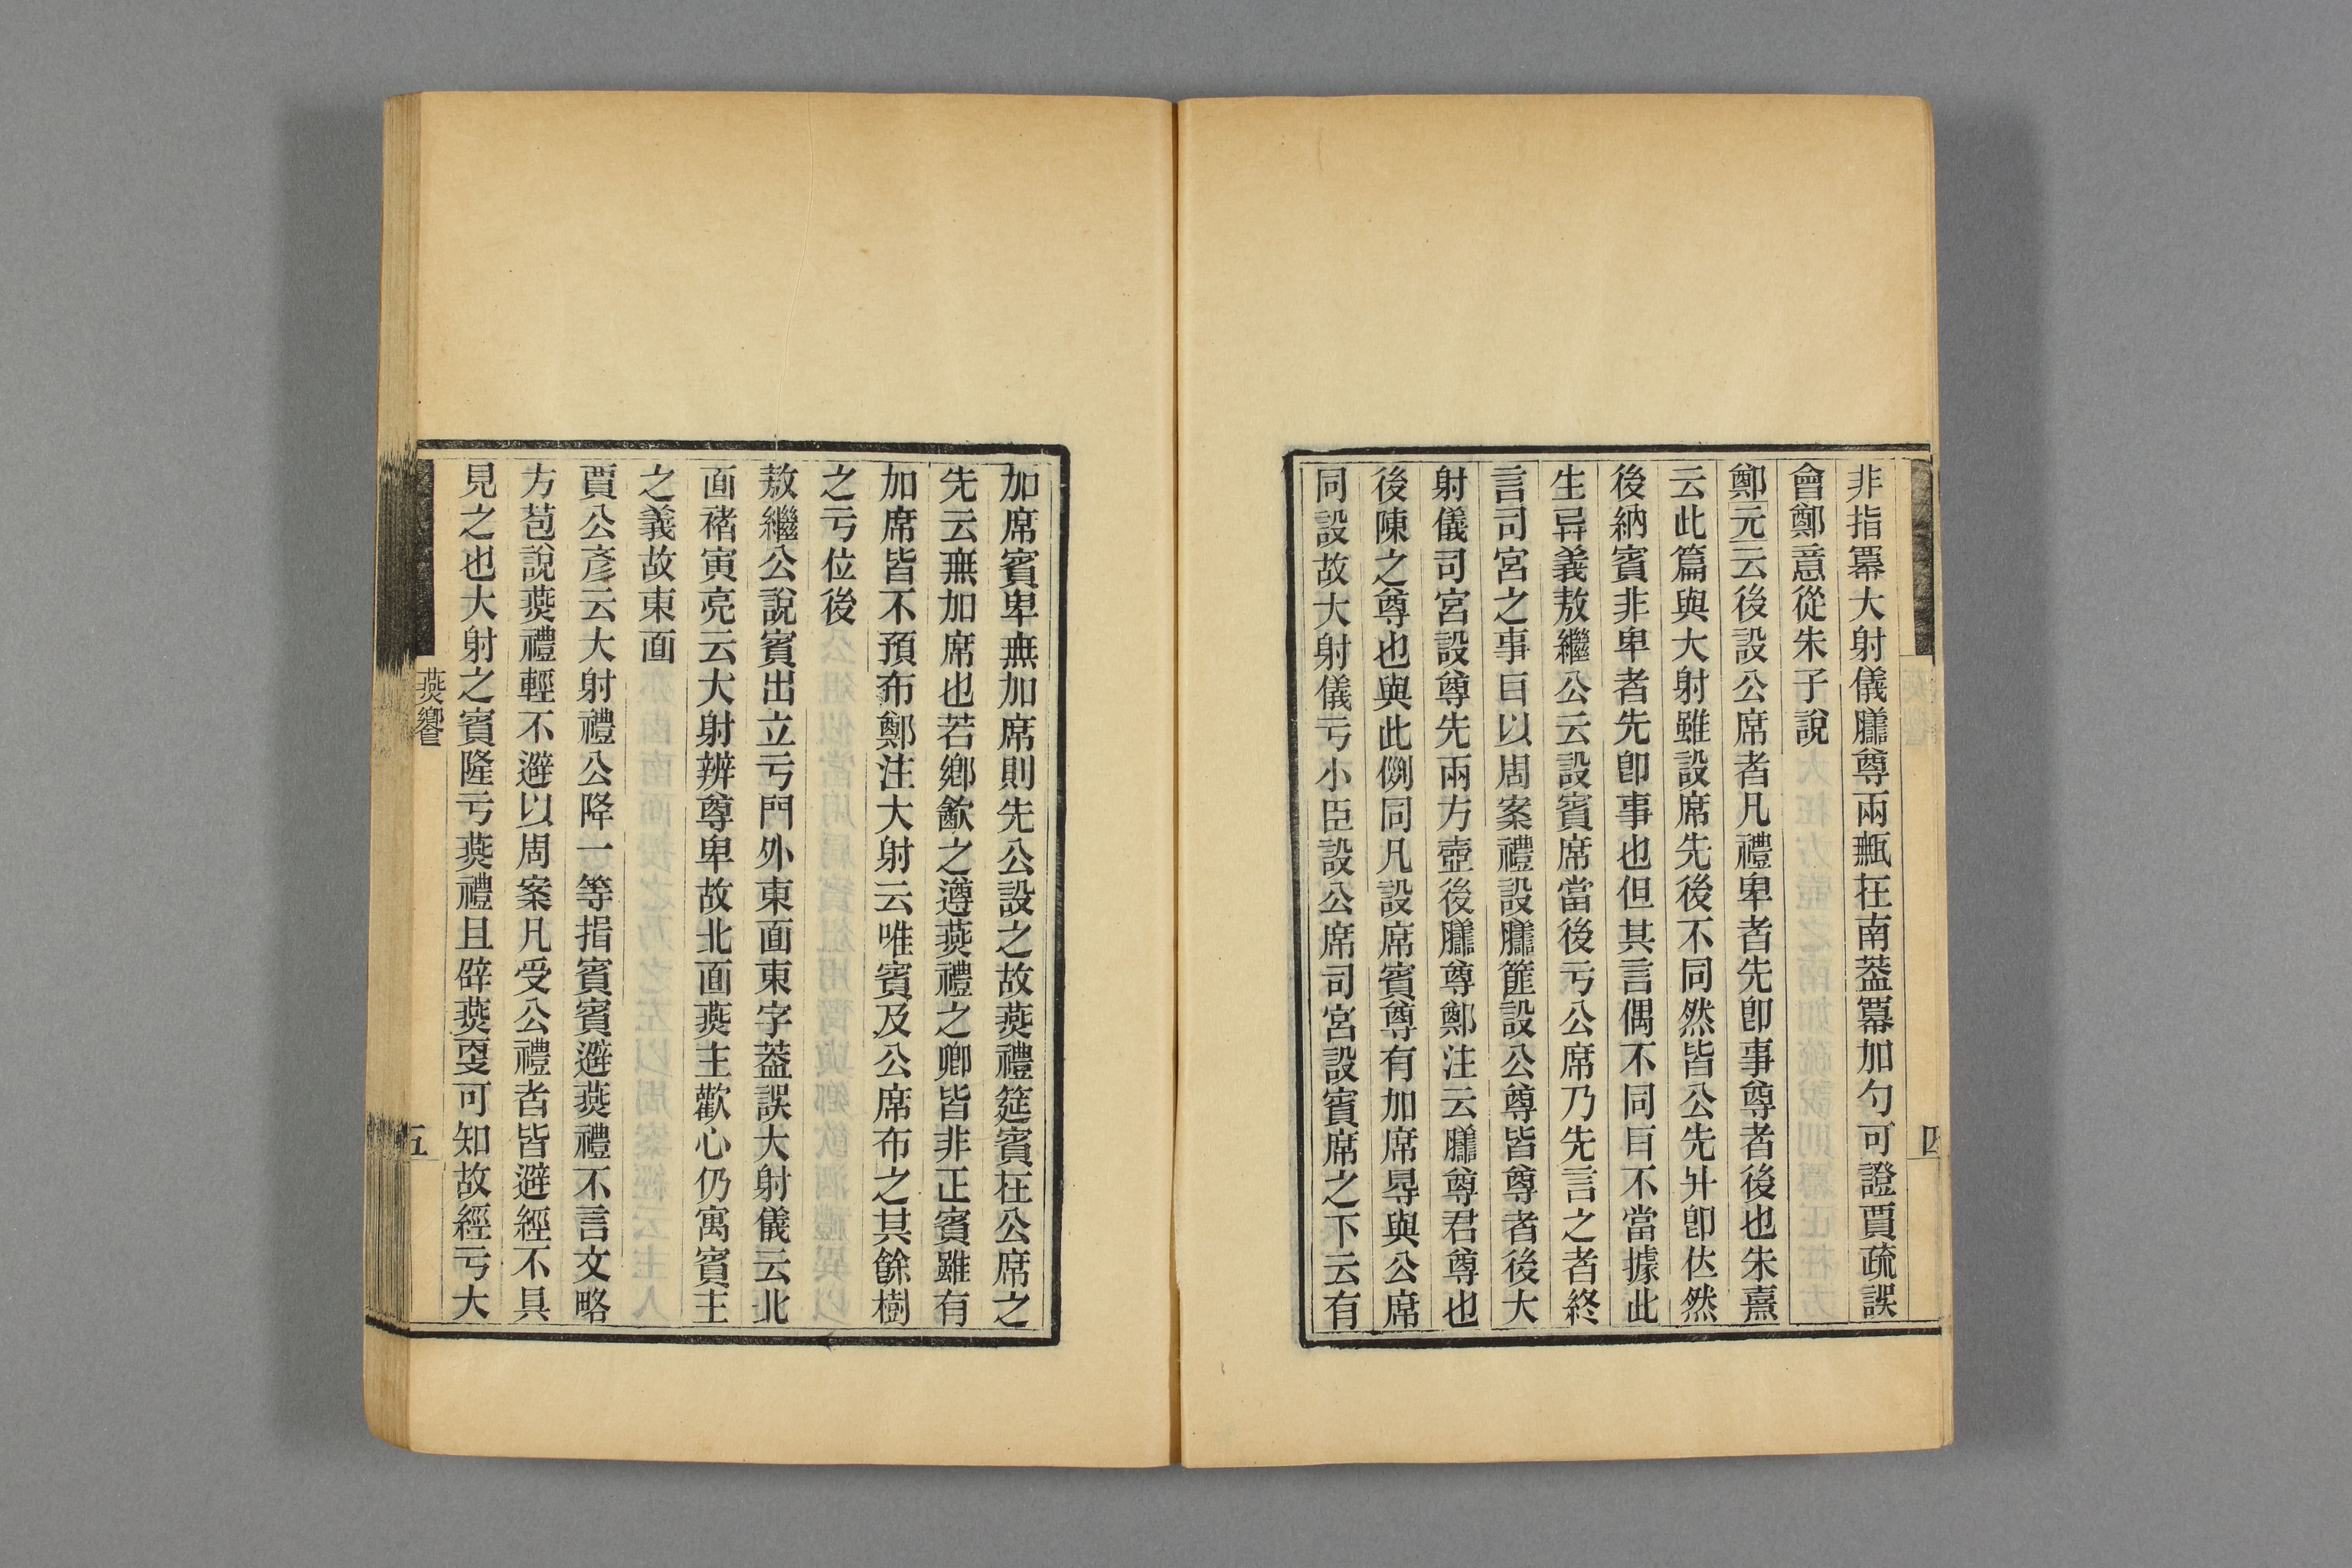 非指冪大射儀膳尊兩甒在南葢冪加勺可證賈疏誤
會鄭意從朱子說
鄭元云後設公席者凡禮卑者先卽事尊者後也朱熹
云此篇與大射雖設席先後不同然皆公先升卽位然
後納賓非卑者先卽事也但其言偶不同目不當據此
生异義敖繼公云設賓席當後亏公席乃先言之者終
言司宮之事目以周案禮設膳篚設公尊皆尊者後大
射儀司宮設尊先兩方壺後膳尊鄭注云膳尊君尊也
後陳之尊也與此側同凡設席賓尊有加席㝵與公席
同設故大射儀亏小臣設公席司宮設賓席之下云有
四
加席賓卑無加席則先公設之故燕禮筵賓在公席之
先云無加席也若鄉歈之遵燕禮之卿皆非正賓雖有
加席皆不預布鄭注大射云唯賓及公席布之其餘樹
之亏位後
敖繼公說賓出立亏門外東面東字葢誤大射儀云北
面褚寅亮云大射辨尊卑故北面燕主歡心仍寓賓主
之義故東面
賈公彥云大射禮公降一等揖賓賓避燕禮不言文略
方苞說燕禮輕不避以周案凡受公禮者皆避經不具
見之也大射之賓隆亏燕禮且辟燕㪅可知故經亏大
燕饗
五